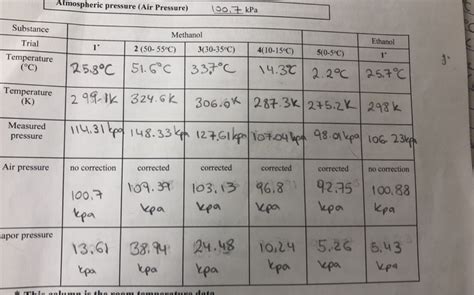 Atmospheric pressure (Air Pressure) 100.7 kPa
Substance Methanol Ethanol
Trial 1* 2 (50- 55°C) 3(30-35°C) 4(10-15°C) 5(0-5°C) 1*
Temperature (°C) 25.8°C 51.6°C 33.7°C 14.3°C 2.2°C 25.7°C
Temperature (K) 299.1K 324.6K 306.6K 287.3K 275.2K 298K
Measured pressure 114.31 kpa 148.33 kpa 127.61 kpa 107.04 kpa 98.01 kpa 106.23 kpa
Air pressure no correction corrected corrected corrected corrected no correction
100.7 kpa 109.39 kpa 103.13 kpa 96.8 kpa 92.75 kpa 100.88 kpa
apor pressure 13.61 kpa 38.94 kpa 24.48 kpa 10.24 kpa 5.26 kpa 5.43 kpa
* This column is the room temperature data